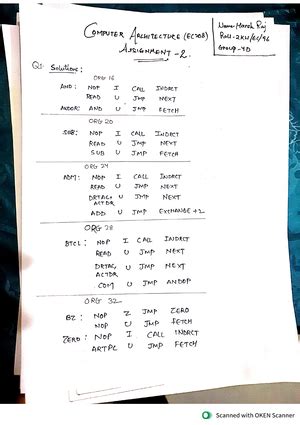 COMPUTER ARCHITECTURE (EC708)
ASSIGNMENT-2.
Name- Harsh Raj
Roll- 2K11/EC/96
Group-4D
Q1 Solution:
ORG 16
AND: NOP I CALL INDRCT
READ U JMP NEXT
ANDOP: AND U JMP FETCH
ORG 20
SUB: NOP I CALL INDRCT
READ U JMP NEXT
SUB U JMP FETCH
ORG 24
ADM: NOP I CALL INDRCT
READ U JMP NEXT
DRTAC, ACTDR U JMP NEXT
ADD U JMP EXCHANGE +2
ORG 28
BTCL: NOP I CALL INDRCT
READ U JMP NEXT
DRTAC, ACTDR U JMP NEXT
COM U JMP ANDOP
ORG 32
BZ: NOP Z JMP ZERO
NOP U JMP FETCH
ZERO: NOP I CALL INDRCT
ARTPC U JMP FETCH
Scanned with OKEN Scanner